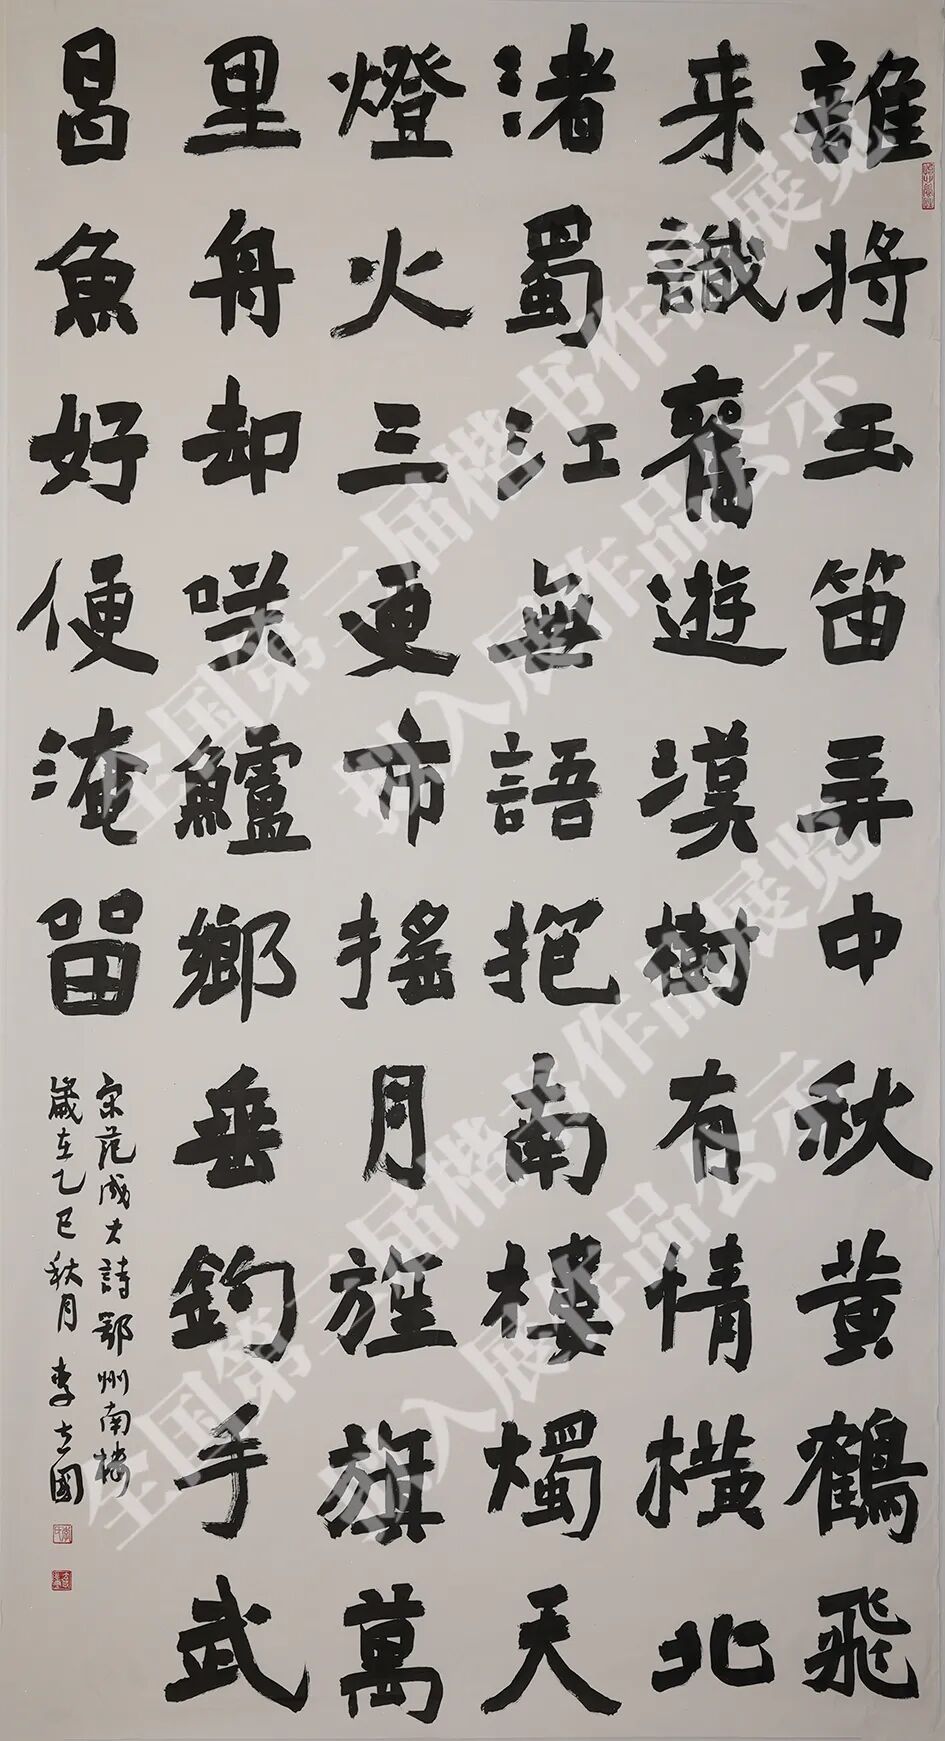 誰将玉笛弄中秋黄鶴飛
来識舊遊漢樹有情橫北
渚蜀江無語抱南樓燭天
燈火三更市搖月旌旗萬
里舟却咲鱸鄉垂釣手武
昌魚好便淹留
宋范成大詩鄂州南樓
歲在乙巳秋月 李立國
全国第三届楷书作品展览
拟入展作品公示
全国第三届楷书作品展览
拟入展作品公示